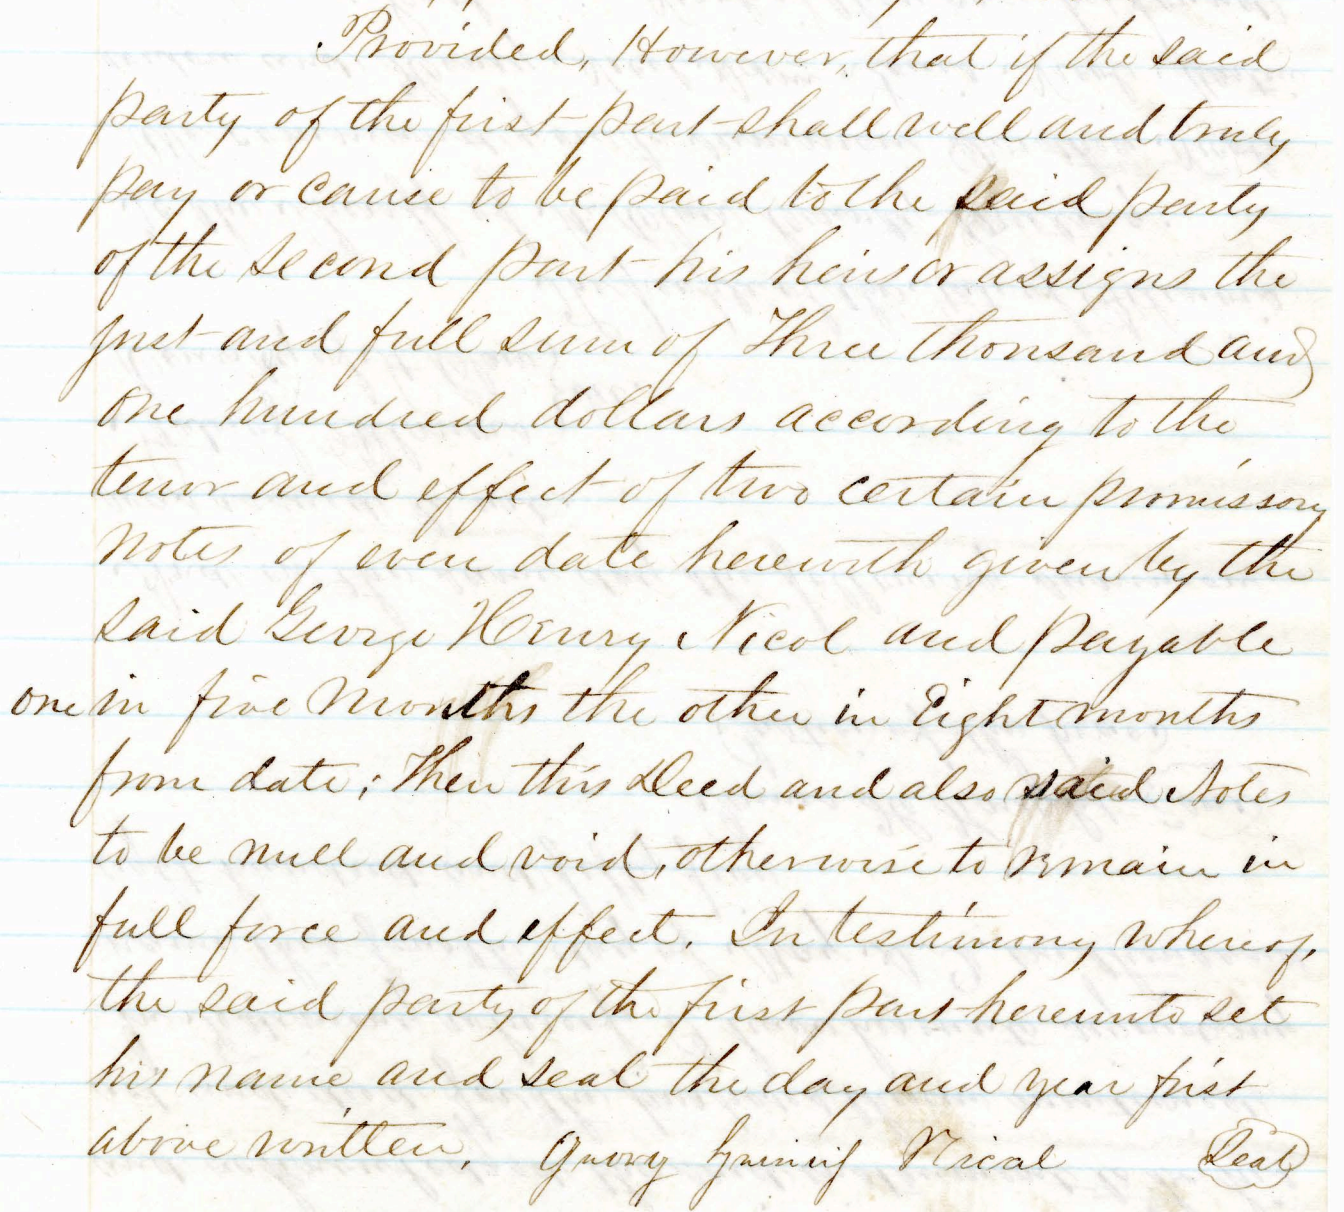 Provided, However, that if the said
party of the first part shall well and truly
pay or cause to be paid to the said party
of the second part his heirs or assigns the
just and full sum of Three thousand and
one hundred dollars according to the
tenor and effect of two certain promissory
notes of even date herewith given by the
said George Henry Nicol and payable
one in five months the other in Eight months
from date; Then this Deed and also said Notes
to be null and void, otherwise to remain in
full force and effect. In testimony whereof,
the said party of the first part hereunto set
his name and seal the day and year first
above written. Nicol Seal